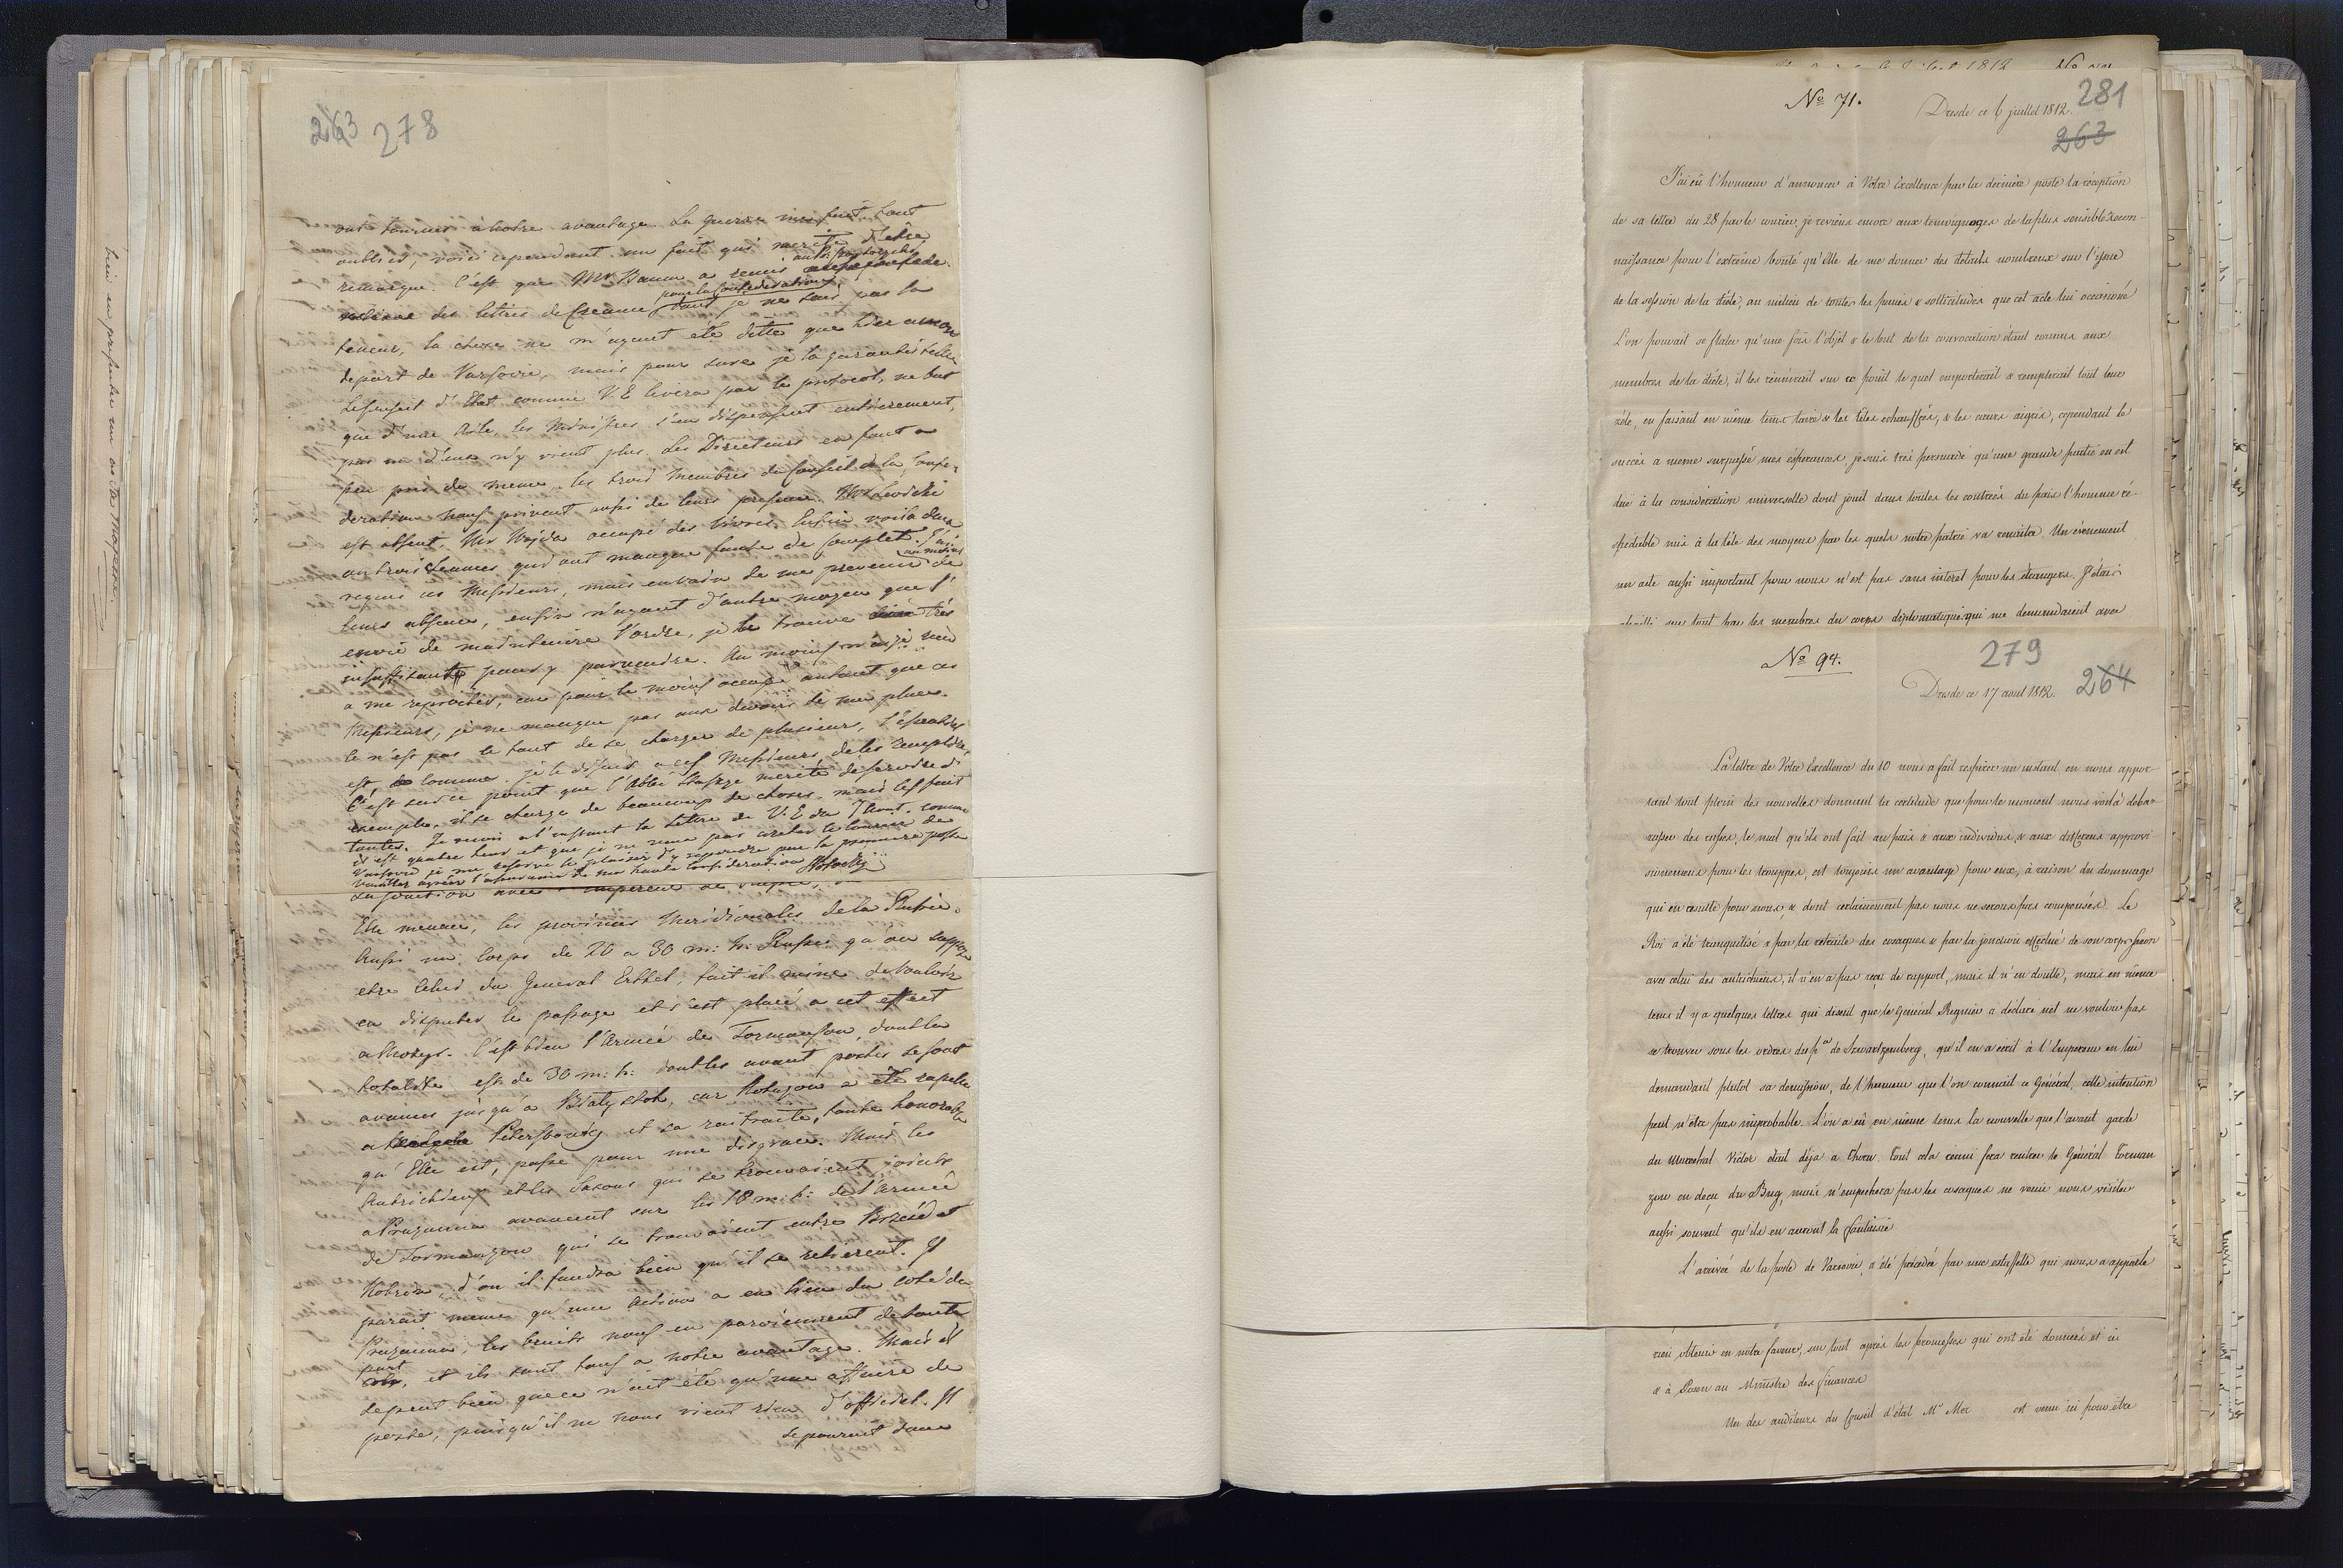 263 278
ont tourné à notre avantage. La guerre me fait tout
oublier, voici cependant un fait qui merite d'etre
remarqué. C'est que Mr Baum a remis
des lettres de Creance pour la Confederation je ne sais pas la
teneur, la chose ne m'ayant été ditte que hier a mon
depart de Varsovie, mais pour sure je la garantis telle
Le Conseil d'Etat comme V. E. le verra par le protocol, ne bat
que d'une Aile, les Ministres s'en dispensent entierement,
pas un d'eux n'y vient plus. Les Directeurs en font a
peu près de meme. les trois Membres du Conseil de la Confe-
deration nous privent aussi de leurs presence. Mr Linowski
est absent. Mr Wojda occupé des vivres. Enfin voila deux
ou trois Seances qui ont manqué faute de Complet. J'ai
requis ces Messieurs, mais en vain de me prevenir au moins de
leurs absence, enfin n'ayant d'autre moyen que l'
envie de maintenire l'ordre, je le trouve très
insuffisant pour y parvendre. Au moins n'ai-je rien
a me reprocher, car pour le moins occupé autant que ces
Messieurs, je ne manque pas aux devoirs de ma place.
Ce n'est pas le tout de se charger de plusieurs, l'essentiel
est, comme je le disais a ces Messieurs, de les remplire,
C'est sur ce point que l'Abbé Staszyc merite de servire d'
exemple, il se charge de beaucoup de choses, mais les fait
toutes. Je reçois a l'instant la lettre de V. E. du 7 Aout. comme
il est quatre heur et que je ne veux pas areter le Courier de
Varsovie je me reserve le plaisir d'y repondre par la premiere poste
Veuillez agréer l'assurance de ma haute Consideration

Elle menace, les provinces Meridionales de la Russie.
Aussi un Corps de 20 a 30 m: h: Russe qu'on suppose
etre Celui du General Ertel, fait il mine de vouloir
en disputer le passage et s'est placé a cet effect
a Mozyr. C'est bien l'Armée de Tormansow, dont la
totalité est de 30 m: h: dont les avant postes se sont
avancés jusqu'a Bialystok, car Kotuzow a été rapellé
a Petersbourg et sa raitraite, toute honorable
qu'Elle est, passe pour une disgrace. Mais les
Autrichiens et les Saxons qui se trouvaient joints
a Pruzanna avancent sur les 18 m: h: de l'Armée
de Tormanzow qui se trouvaient entre Brzesc et
Kobrin, d'ou il faudra bien qu'il se retirerent. Il
parait meme qu'une Action a eu lieu du coté de
Pruzanna, les bruits nous en parviennent de toute
part, et ils sont tous a notre avantage. Mais il
se peut bien que ce n'ait été qu'une affaire de
poste, puisqu'il ne nous vient rien d'officiel. Il
se pourrait donc
bien en profiter en
No 71.
Dresde ce 6 juillet 1812.
281
263
J'ai eû l'honneur d'annoncer à Votre Excellence par la dernière poste la réception
de sa lettre du 28 par le courier, je reviens encore aux temoignages de la plus sensible recon-
naissance pour l'extrême bonté qu'Elle de me donner des details nombreux sur l'issue
de la session de la diète, au milieu de toutes les peines & sollicitudes que cet acte lui occasionné
L'on pouvait se flater qu'une fois l'objet & le but de la convocation étant connus aux
membres de la diète, il les réunirait sur ce point le quel emporterait & remplirait tout leur
zèle, en faisant en même tems taire & les têtes echauffées, & les cœurs aigris, cependant le
succès a meme surpassé mes espérances, je suis très persuadé qu'une grande partie en est
due à la considération universelle dont jouit dans toutes les contrées du païs l'homme ré-
spectable mis à la tête des moyens par les quels notre patrie va renaitre. Un evenement
un acte aussi important pour nous n'est pas sans interet pour les étrangers. J'étais
sur tout par les membres du corps diplomatique qui me demandaient avec
No 94.
279
Dresde ce 17 aout 1812.
264
La lettre de Votre Excellence du 10 nous a fait respirer un instant, en nous appor-
tant tout plein des nouvelles donnant la certitude que pour le moment nous voilà deba-
rassés des russes, le mal qu'ils ont fait au païs & aux individus, & aux differens approvi
sionemens pour les trouppes, est toujours un avantage pour eux, à raison du dommage
qui en resulte pour nous, & dont certainement pas nous ne serons pas compensés. Le
Roi a été tranquilisé & par la retraite des cosaques & par la jonction effectué de son corps saxon
avec celui des autrichiens, il n'en a pas reçu de rapport, mais il n'en doutte, mais en même
tems il y a quelques lettres qui disent que le Général Regnier à déclaré net ne vouloir pas
se trouver sous les ordres du pce de Szwartzemberg, qu'il en a écrit à l'Empereur en lui
demandant plutot sa demission, de l'humeur que l'on connait ce Général, cette intention
peut n'etre pas improbable. L'on a eû en même tems la nouvelle que l'avant garde
du Marechal Victor était déja a Thorn. tout cela réuni fera rentrer le Général Torman
zow en deça du Bug, mais n'empechera pas les cosaques ne venir nous visiter
aussi souvent qu'ils en auront la fantaisie
L'arrivée de la poste de Varsovie, a été précédée par une estaffette qui nous a apporté
rien obtenir en notre faveur, sur tout après les promesses qui ont été données et ici
& à Posen au Ministre des finances
Un des auditeurs du Conseil d'état Mr Mor est venu ici pour être